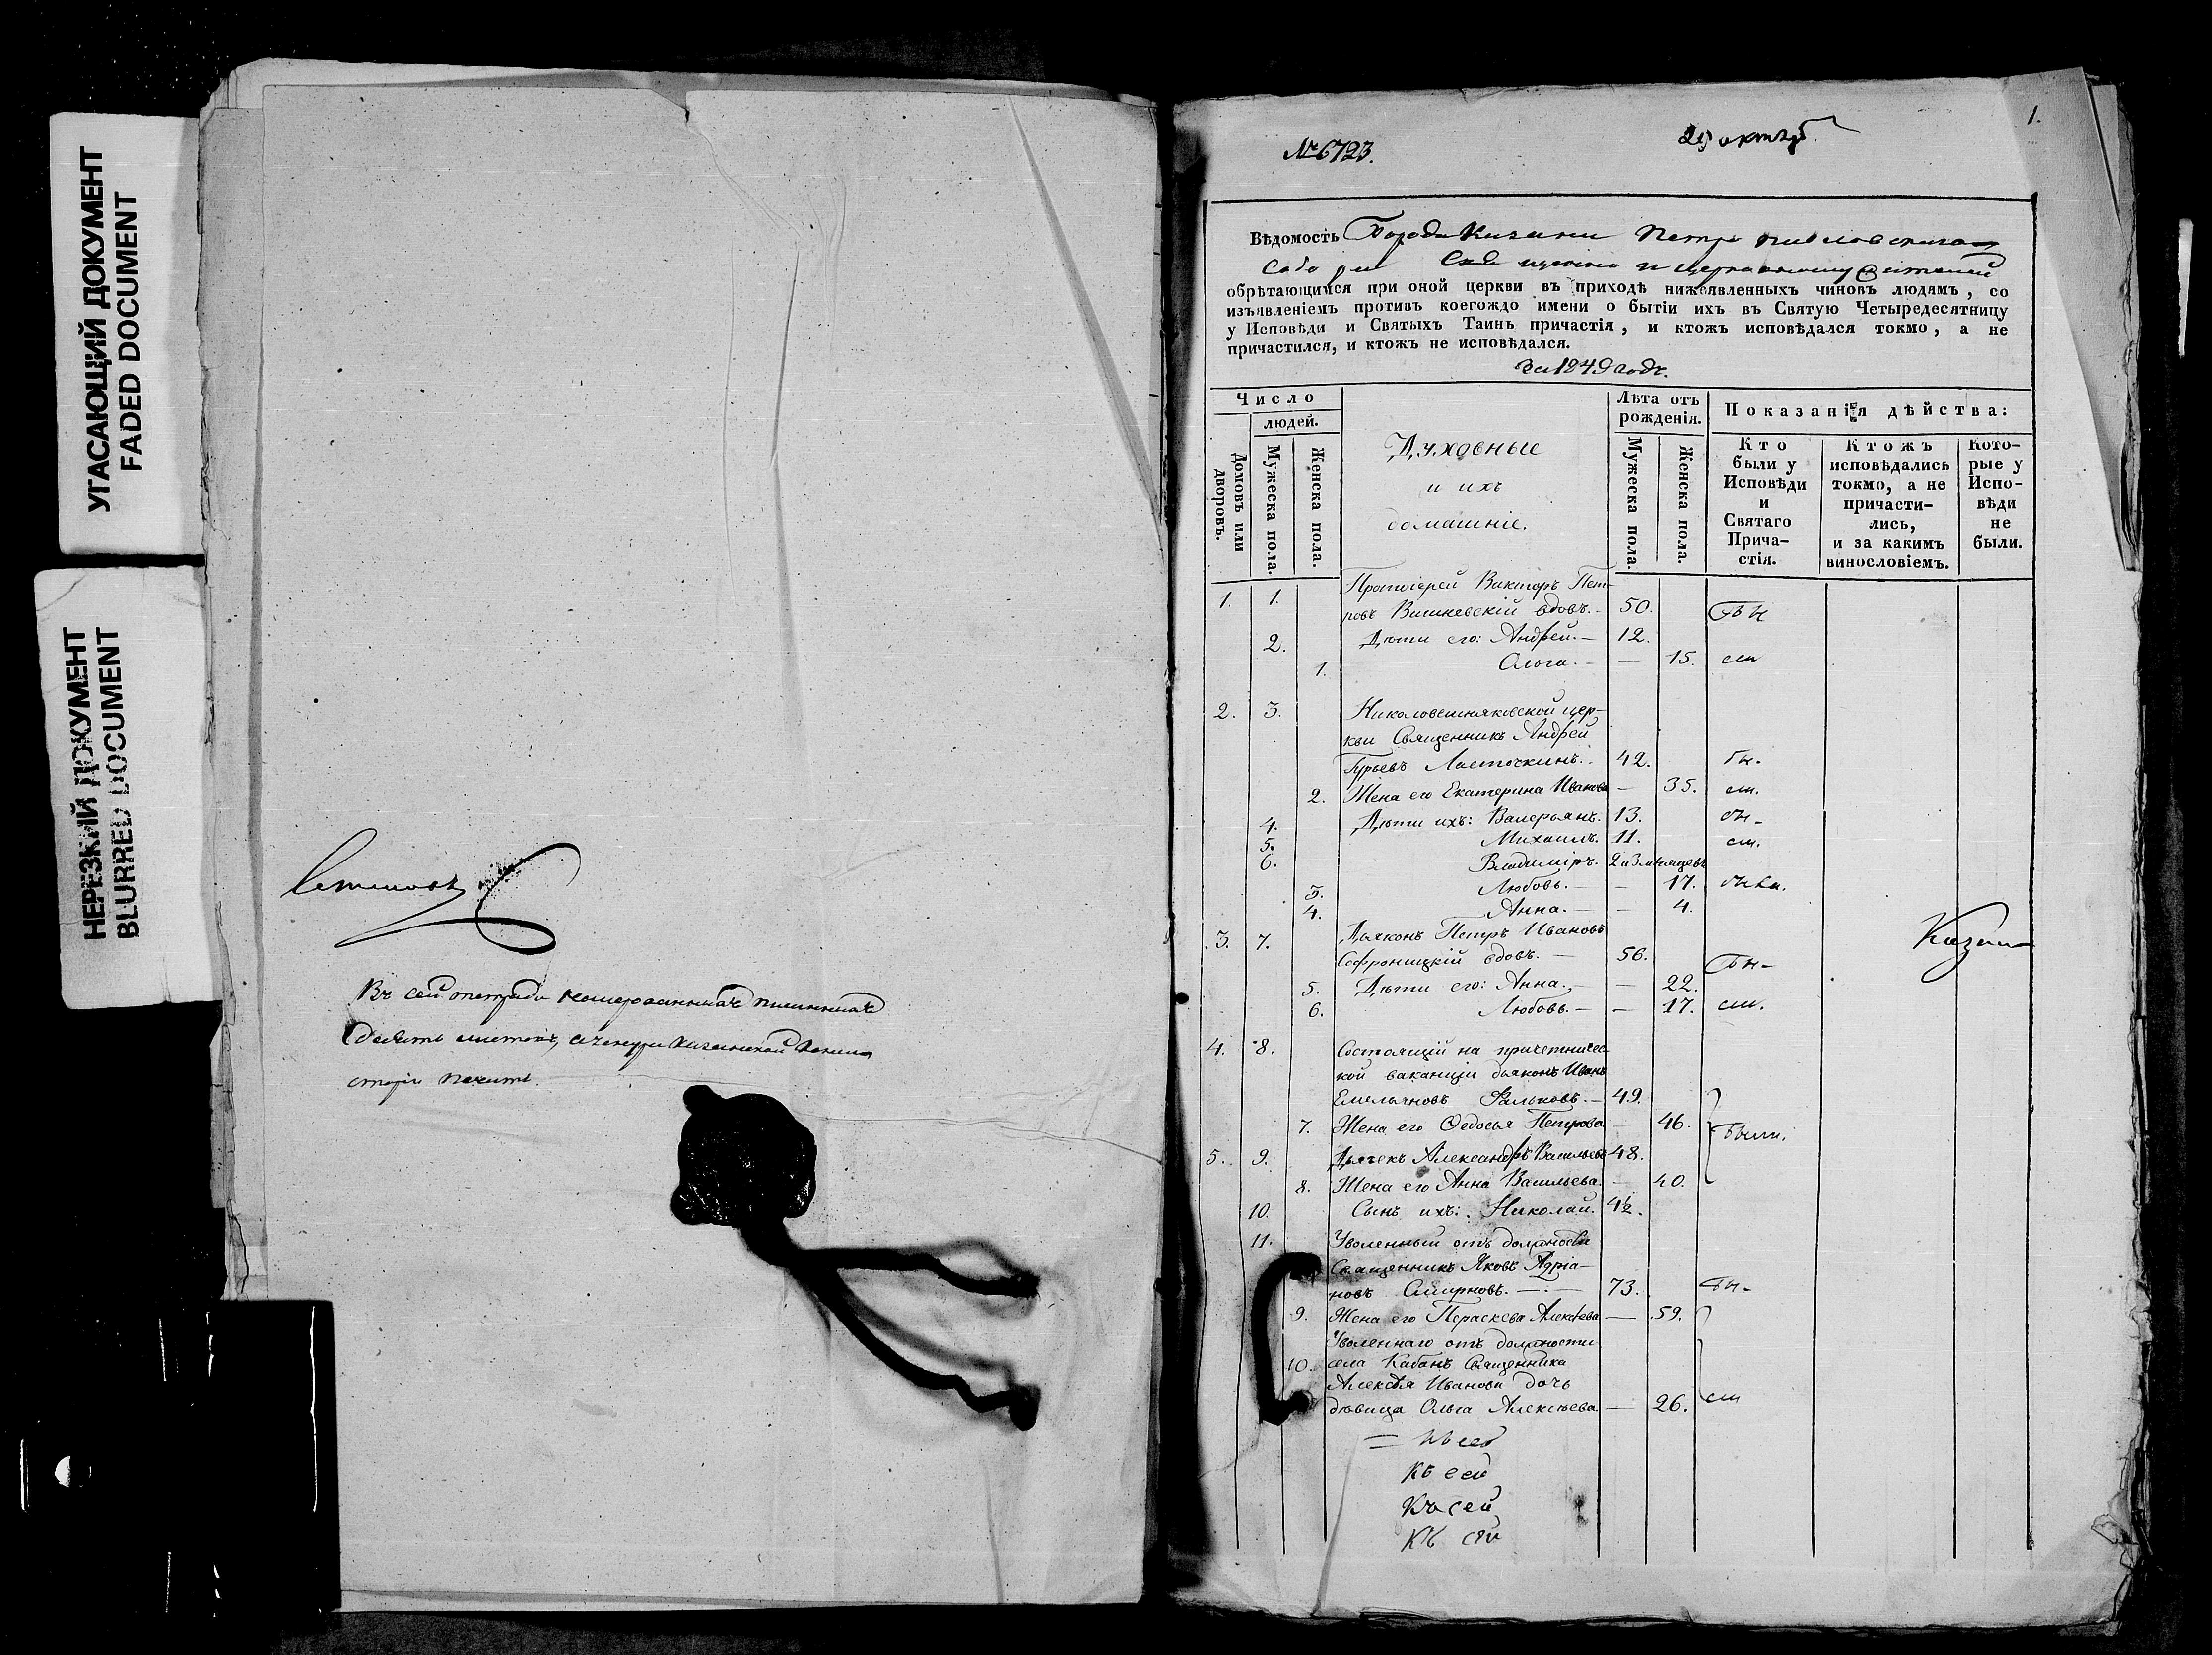 УГАСАЮЩИЙ ДОКУМЕНТ
FADED DOCUMENT
НЕРЕЗКИЙ ДОКУМЕНТ
BLURRED DOCUMENT
Въ сей тетради
десять листовъ,
печать.
№ 6723.
29 октяб
1.
Вѣдомость Города Казани Петропавловскаго
Собора
обрѣтающимся при оной церкви въ приходѣ нижеявленныхъ чиновъ людямъ, со
изъявленіемъ противъ коегождо имени о бытіи ихъ въ Святую Четыредесятницу
у Исповѣди и Святыхъ Таинъ причастія, и ктожъ исповѣдался токмо, а не
причастился, и ктожъ не исповѣдался.
За 1849 годъ.
Число
людей.
Домовъ или дворовъ.
Мужеска пола.
Женска пола.
Духовные
и ихъ
домашніе.
Лѣта отъ
рожденія.
Мужеска пола.
Женска пола.
Показанія дѣйства:
Кто
были у
Исповѣди
и
Святаго
Прича-
стія.
Ктожъ
исповѣдались
токмо, а не
причасти-
лись,
и за какимъ
винословіемъ.
Кото-
рые у
Испо-
вѣди
не
были.
1. 1. Протоіерей Викторъ Пет-
ровъ Вишневскій вдовъ. - 50. бы
2. Дѣти его: Андрей. - 12.
1. Ольга. - — 15. ли
2. 3. Николовешняковской цер-
кви Священникъ Андрей
Гурьевъ Ласточкинъ. 42. бы-
2. Жена его Екатерина Иванова — 35. ли.
4. Дѣти ихъ: Валерьянъ. 13. бы-
5. Михаилъ. 11. ли.
6. Владиміръ. 2 и 3 мѣсяцевъ
3. Любовь. — — 17. была.
4. Анна. — — 4.
3. 7. Дьяконъ Петръ Ивановъ
Софроницкій вдовъ. — 56. Бы-
5. Дѣти его: Анна. — 22.
6. Любовь. — — 17. ли.
Казан
4. 8. Состоящій на причетничес-
кой ваканціи дьяконъ Иванъ
Емельяновъ Фальковъ. — 49.
7. Жена его Ѳедосья Петрова — 46. Были.
5. 9. Дьячекъ Александръ Васильевъ 48.
8. Жена его Анна Васильева. — 40.
10. Сынъ ихъ: Николай. 4½.
11. Уволенный отъ должности
Священникъ Яковъ Адріа-
новъ Смирновъ. — 73. Бы-
9. Жена его Параскева Алексѣева — 59.
Уволеннаго отъ должности
10. села Кабанъ Священника
Алексѣя Иванова дочь
дѣвица Ольга Алексѣева. — 26. ли
къ сей
къ сей
Къ сей
къ сей